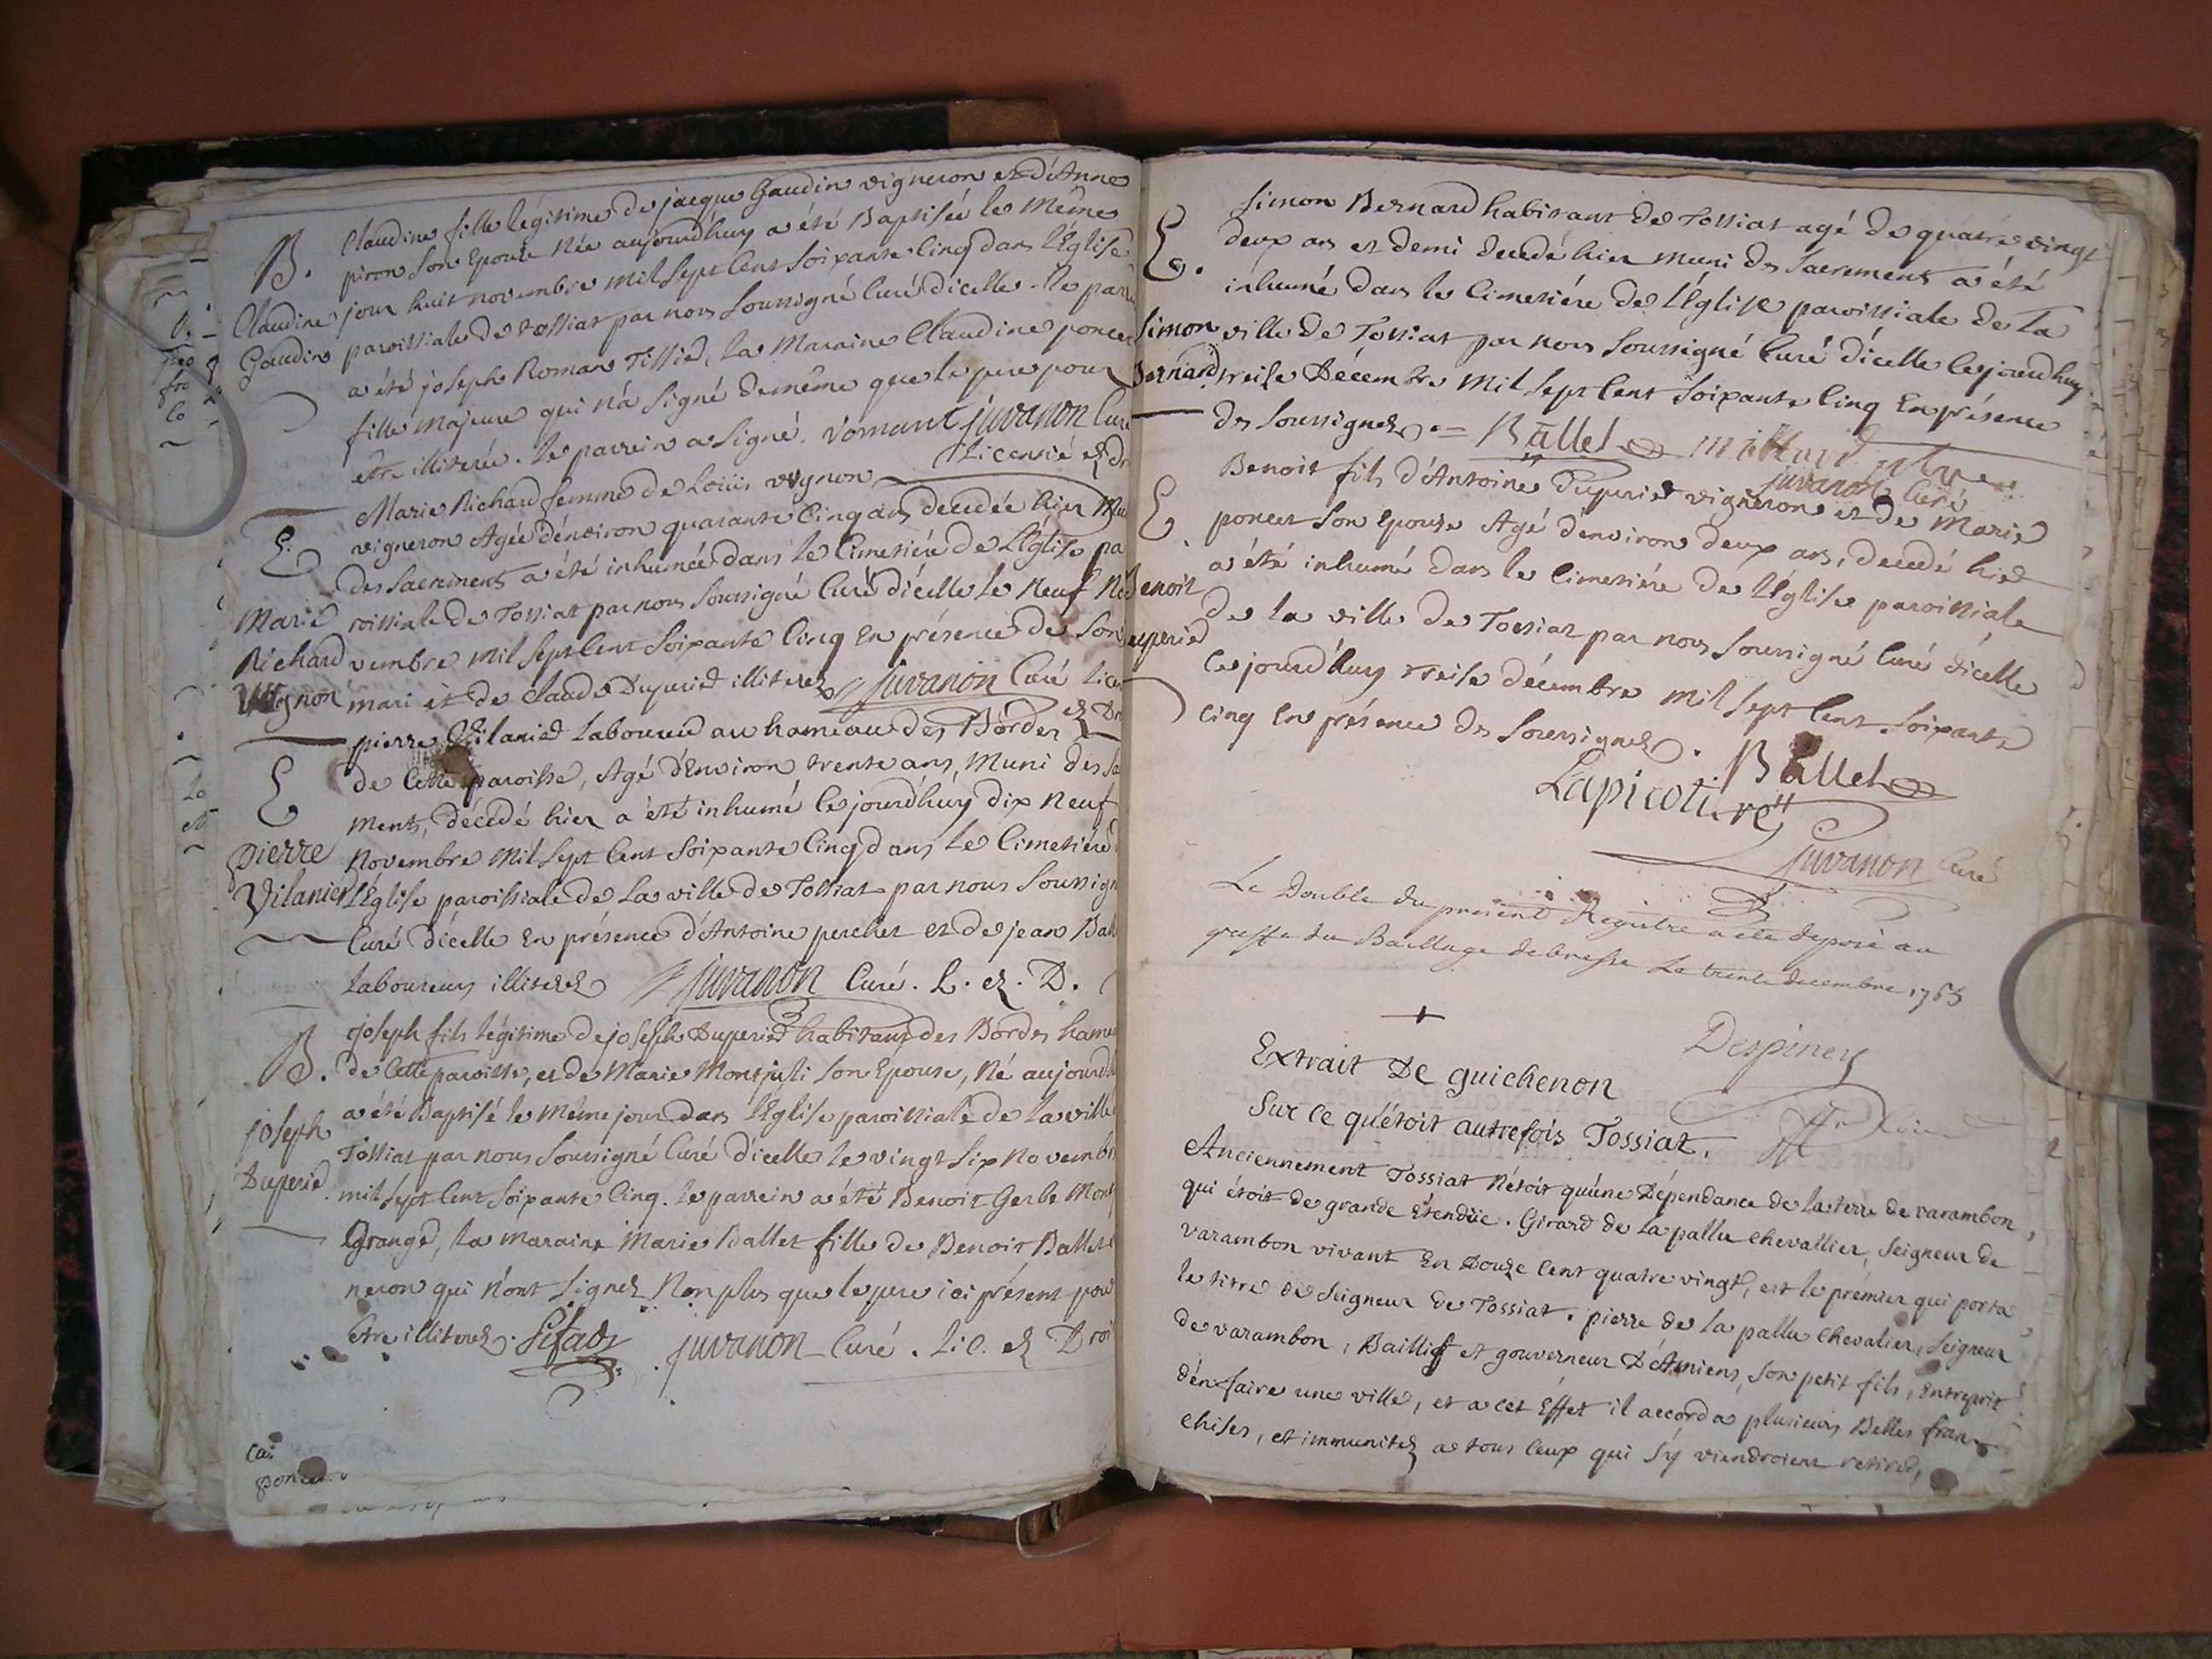 B.
Claudine fille légitime de jacque Gaudin vigneron et d'Anne
piron Son Epouse Née aujourd'huy a été Baptisée le Même
Claudine
Gaudin
jour huit novembre mil Sept Cent Soixante Cinq dans l'Eglise
paroissiale de tossiat par nous Soussigné Curé d'icelle. le parr
a été joseph Roman Tissier, la Maraine Claudine poncet
fille majeure qui n'a Signé de même que le pere pour
être illiterée. le parrein a Signé. Romant juvanon Curé
Licencié ez dr
E.
Marie Richard femme de Loüis vognon
vigneron Agée d'environ quarante Cinq ans decedée hier Mu
des Sacrements a été inhumée dans le Cimetiére de l'Eglise pa
Marie
Richard
Vognon
roissiale de Tossiat par nous Soussigné Curé d'icelle le Neuf No
vembre mil Sept Cent Soixante Cinq En présence de Son
mari et de Claude Duperier illiterez juvanon Curé Licen
ez Dr
E
pierre Vilanier Laboureur au hameau des Bordes
de Cette paroisse, Agé d'Environ trente ans, Muni des Sa
ments, décédé hier a été inhumé Cejourd'huy dix Neuf
pierre
Vilanier
Novembre Mil Sept Cent Soixante Cinq dans le Cimetiére
l'Eglise paroissiale de La ville de Tossiat par nous Soussign
Curé d'icelle En présence d'Antoine perchet et de jean Ball
Laboureurs illiterez juvanon Curé. L. ez. D.
B.
joseph fils légitime de joseph Duperier habitant des Bordes hame
de Cette paroisse, et de Marie Montjuli Son Epouse, Né aujourd'h
joseph
Duperier
a été Baptisé le Même jour dans l'Eglise paroissiale de la ville
Tossiat par nous Soussigné Curé d'icelle le vingt Six Novembr
mil Sept Cent Soixante Cinq. le parrein a été Benoit Gerbe Mont
Grange, la maraine Marie Ballet fille de Benoit Ballet
neron qui n'ont Signez Non plus que le pere ici présent pour
Etre illiterez. juvanon Curé. Lic. ez Droi
Ca:
poncet
E.
Simon Bernard habitant de Tossiat agé de quatre vingt
deux ans et demi decedé hier muni des Sacrements a été
inhumé dans le Cimetiére de l'Eglise paroissiale de La
Simon
Bernard
ville de Tossiat par nous Soussigné Curé d'icelle Cejourd'huy
treise Décembre Mil Sept Cent Soixante Cinq En présence
des Soussignez. = Ballet millard ptre
juvanon Curé
E.
Benoit fils d'Antoine Duperier vigneron et de Marie
poncet Son Epouse Agé d'environ deux ans, decedé hier
a été inhumé dans le Cimetiére de l'Eglise paroissiale
Benoit
uperier
de la ville de Tossiat par nous Soussigné Curé d'icelle
Cejourd'huy treise décembre mil Sept Cent Soixante
Cinq En présence des Soussignez. Ballet
Lapicotire
juvanon Curé
Le Double du present Registre a été deposé au
greffe du Baillage de bresse Le trente decembre 1765
Despiney
Extrait De guichenon
Sur Ce qu'étoit autrefois Tossiat.
Anciennement Tossiat N'étoit qu'une Dépendance de la terre de varambon,
qui étoit de grande Etendüe. Girard de la pallu Chevallier, Seigneur de
varambon vivant En Douze Cent quatre vingt, est le prémier qui porta
le titre de Seigneur de Tossiat. pierre de la pallu Chevalier, Seigneur
de varambon, Baillif et gouverneur D'Amiens, Son petit fils, Entreprit
d'en faire une ville, et a cet Effet il accorda plusieurs Belles fran-
chises, et immunitez a tous Ceux qui S'y viendroient retirer,